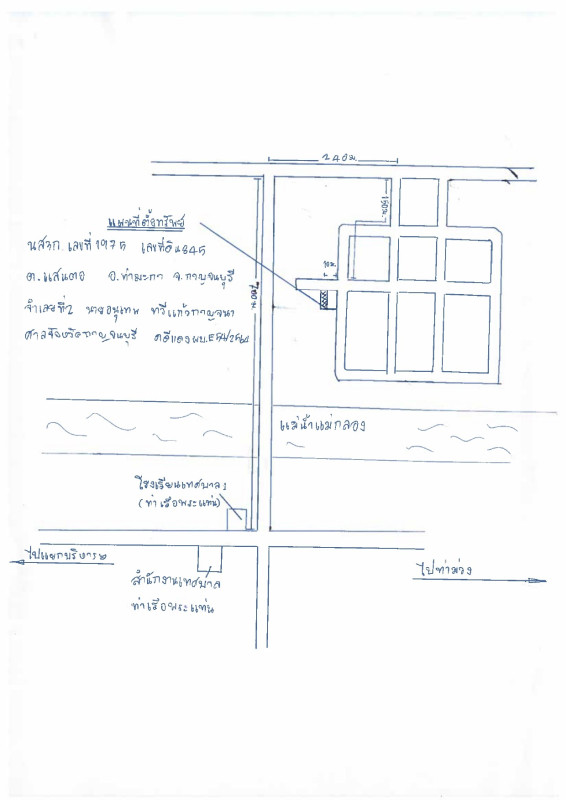 240ม.
150ม.
แผนที่ตั้งทรัพย์
นส3ก. เลขที่ 1975 เลขที่ดิน 845
ต.แสนตอ อ.ท่ามะกา จ.กาญจนบุรี
จำเลยที่2 นายอนุเทพ ทวีแก้วกาญจนา
ศาลจังหวัดกาญจนบุรี คดีแดง ผบ.E74/2564
700 ม.
แม่น้ำแม่กลอง
โรงเรียนเทศบาล 1
(ท่าเรือพระแท่น)
ไปแยก
ไปท่าม่วง
สำนักงานเทศบาล
ท่าเรือพระแท่น